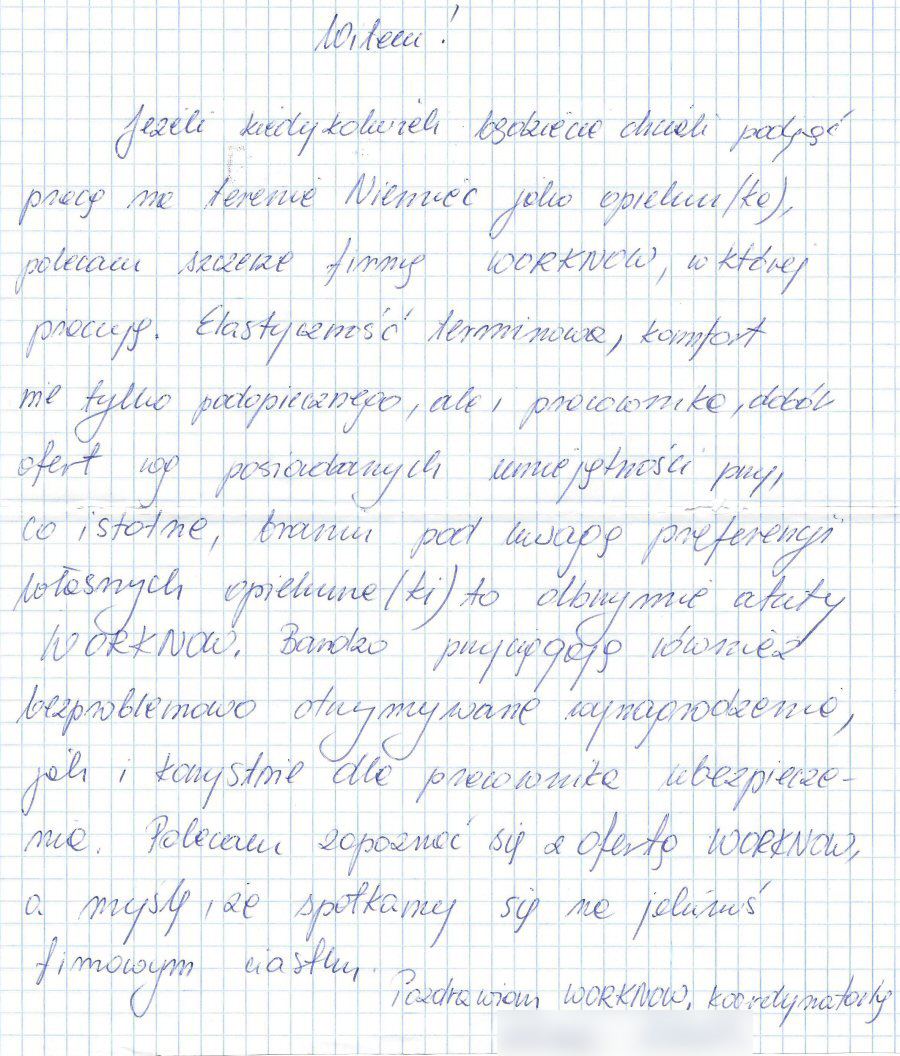 Witam!
Jeżeli kiedykolwiek będziecie chcieli podjąć
pracę na terenie Niemiec jako opiekun/ka),
polecam szczerze firmę WORKNOW, w której
pracuję. Elastyczność terminowa, komfort
nie tylko podopiecznego, ale i pracownika, dobór
ofert wg posiadanych umiejętności przy,
co istotne, braniu pod uwagę preferencji
własnych opiekuna/(ki) to olbrzymie atuty
WORKNOW. Bardzo przyciągają również
bezproblemowo otrzymywane wynagrodzenie,
jak i korzystne dla pracownika ubezpiecze-
nie. Polecam zapoznać się z ofertą WORKNOW,
a myślę, że spotkamy się na jakimś
firmowym ciastku.
Pozdrawiam WORKNOW, koordynatorkę